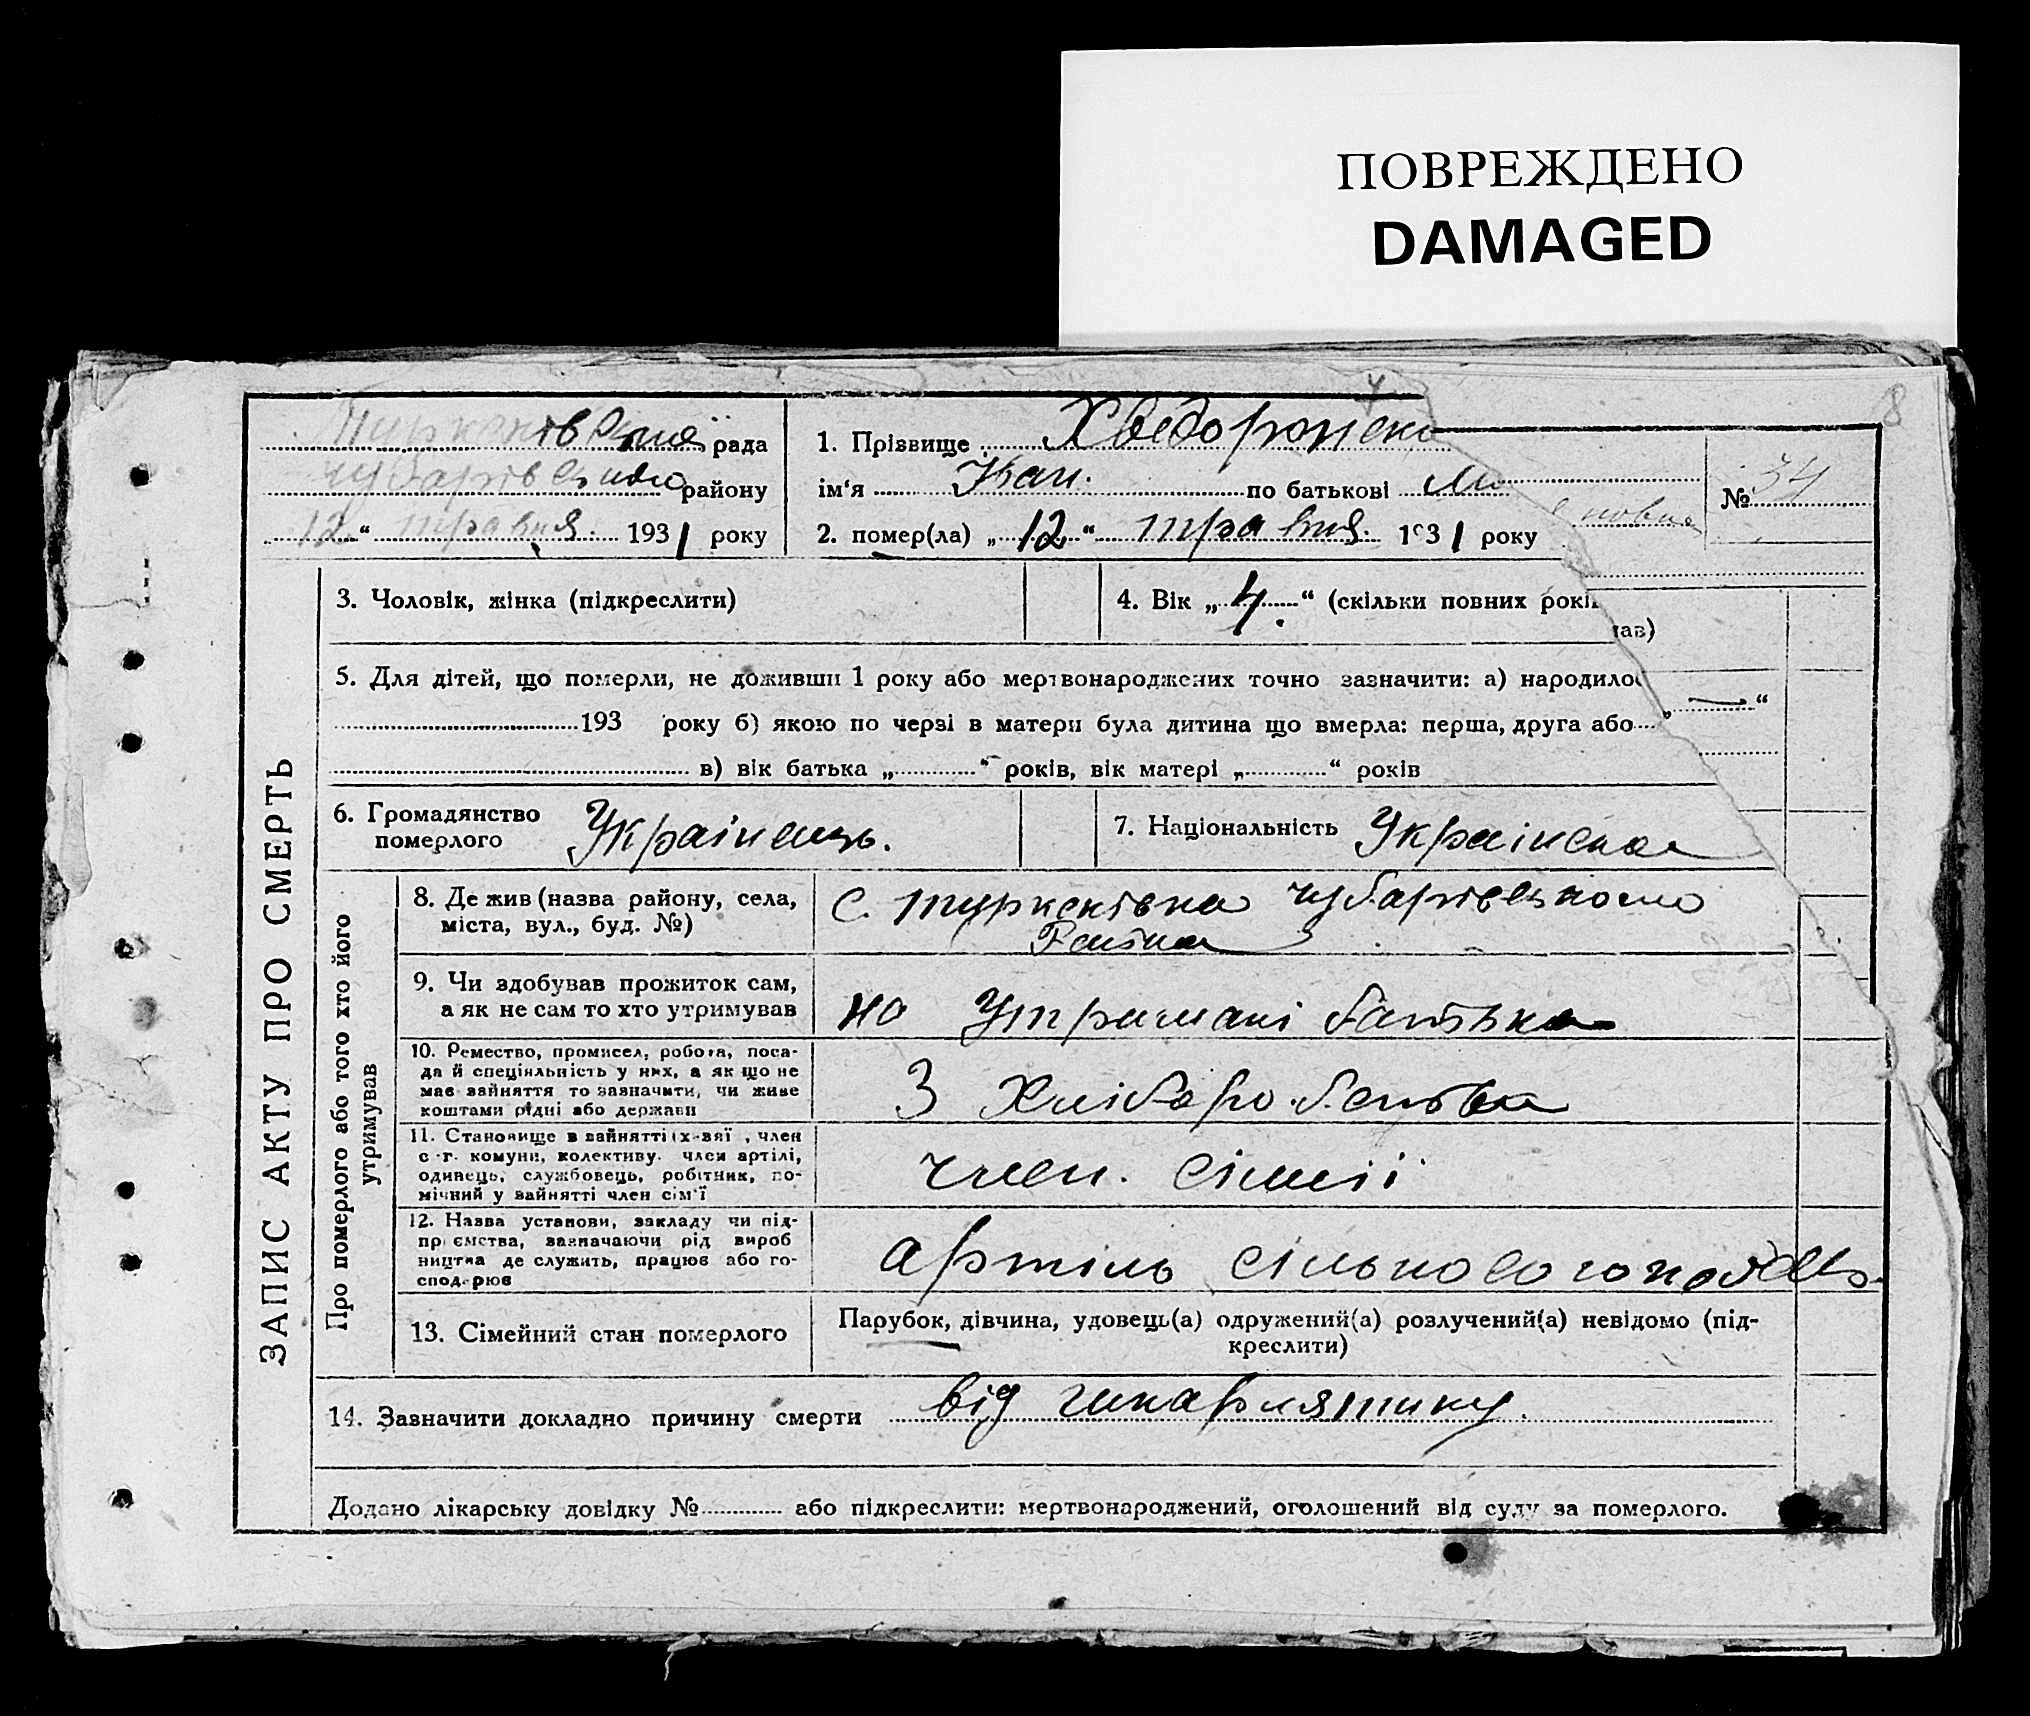 ПОВРЕЖДЕНО
DAMAGED
8
Туркенівська рада
Чубарівського району
„12“ травня 1931 року
1. Прізвище Хведорченко
ім‘я Іван. по батькові
2. помер(ла) „12“ травня 1931 року
№ 34
3. Чоловік, жінка (підкреслити)
4. Вік „4.“ (скільки повних рокі
ав)
5. Для дітей, що померли, не доживши 1 року або мертвонароджених точно зазначити: а) народилос „—“
193 року б) якою по черзі в матери була дитина що вмерла: перша, друга або
в) вік батька „ “ років, вік матері „ “ років
6. Громадянство
померлого
Українець.
7. Національність Українська
ЗАПИС АКТУ ПРО СМЕРТЬ
Про померлого або того хто його
утримував
8. Де жив (назва району, села,
міста, вул., буд. №)
С. Туркенівка Чубарівського
Району
9. Чи здобував прожиток сам,
а як не сам то хто утримував
на Утримані батька
10. Ремество, промисел, робота, поса-
да й спеціяльність у них, а як що не
має зайняття то зазначити, чи живе
коштами рідні або держави
З Хліборобства
11. Становище в зайнятті (х-вяї , член
с -г. комуни, колективу. член артілі,
одинець, службовець, робітник, по-
мічний у зайнятті член сім‘ї
член. сімії
12. Назва установи, закладу чи під-
приємства, зазначаючи рід вироб
ництва де служить, працює або го-
сподарює
артіль
13. Сімейний стан померлого
Парубок, дівчина, удовець(а) одружений(а) розлучений(а) невідомо (під-
креслити)
14. Зазначити докладно причину смерти від
Додано лікарську довідку № або підкреслити: мертвонароджений, оголошений від суду за померлого.